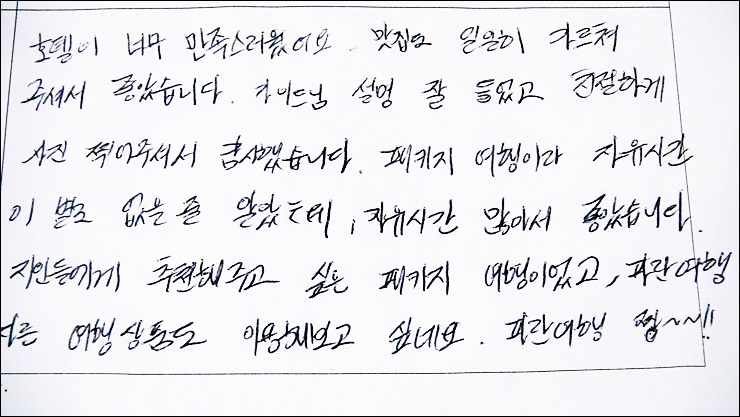 호텔이 너무 만족스러웠어요. 맛집도 일일히 가르쳐
주셔서 좋았습니다. 가이드님 설명 잘 들었고 친절하게
사진 찍어주셔서 감사했습니다. 패키지 여행이라 자유시간
이 별로 없을 줄 알았는데, 자유시간 많아서 좋았습니다.
지인들에게 추천해주고 싶은 패키지 여행이었고, 파란여행
다른 여행상품도 이용해보고 싶네요. 파란여행 짱~~!!